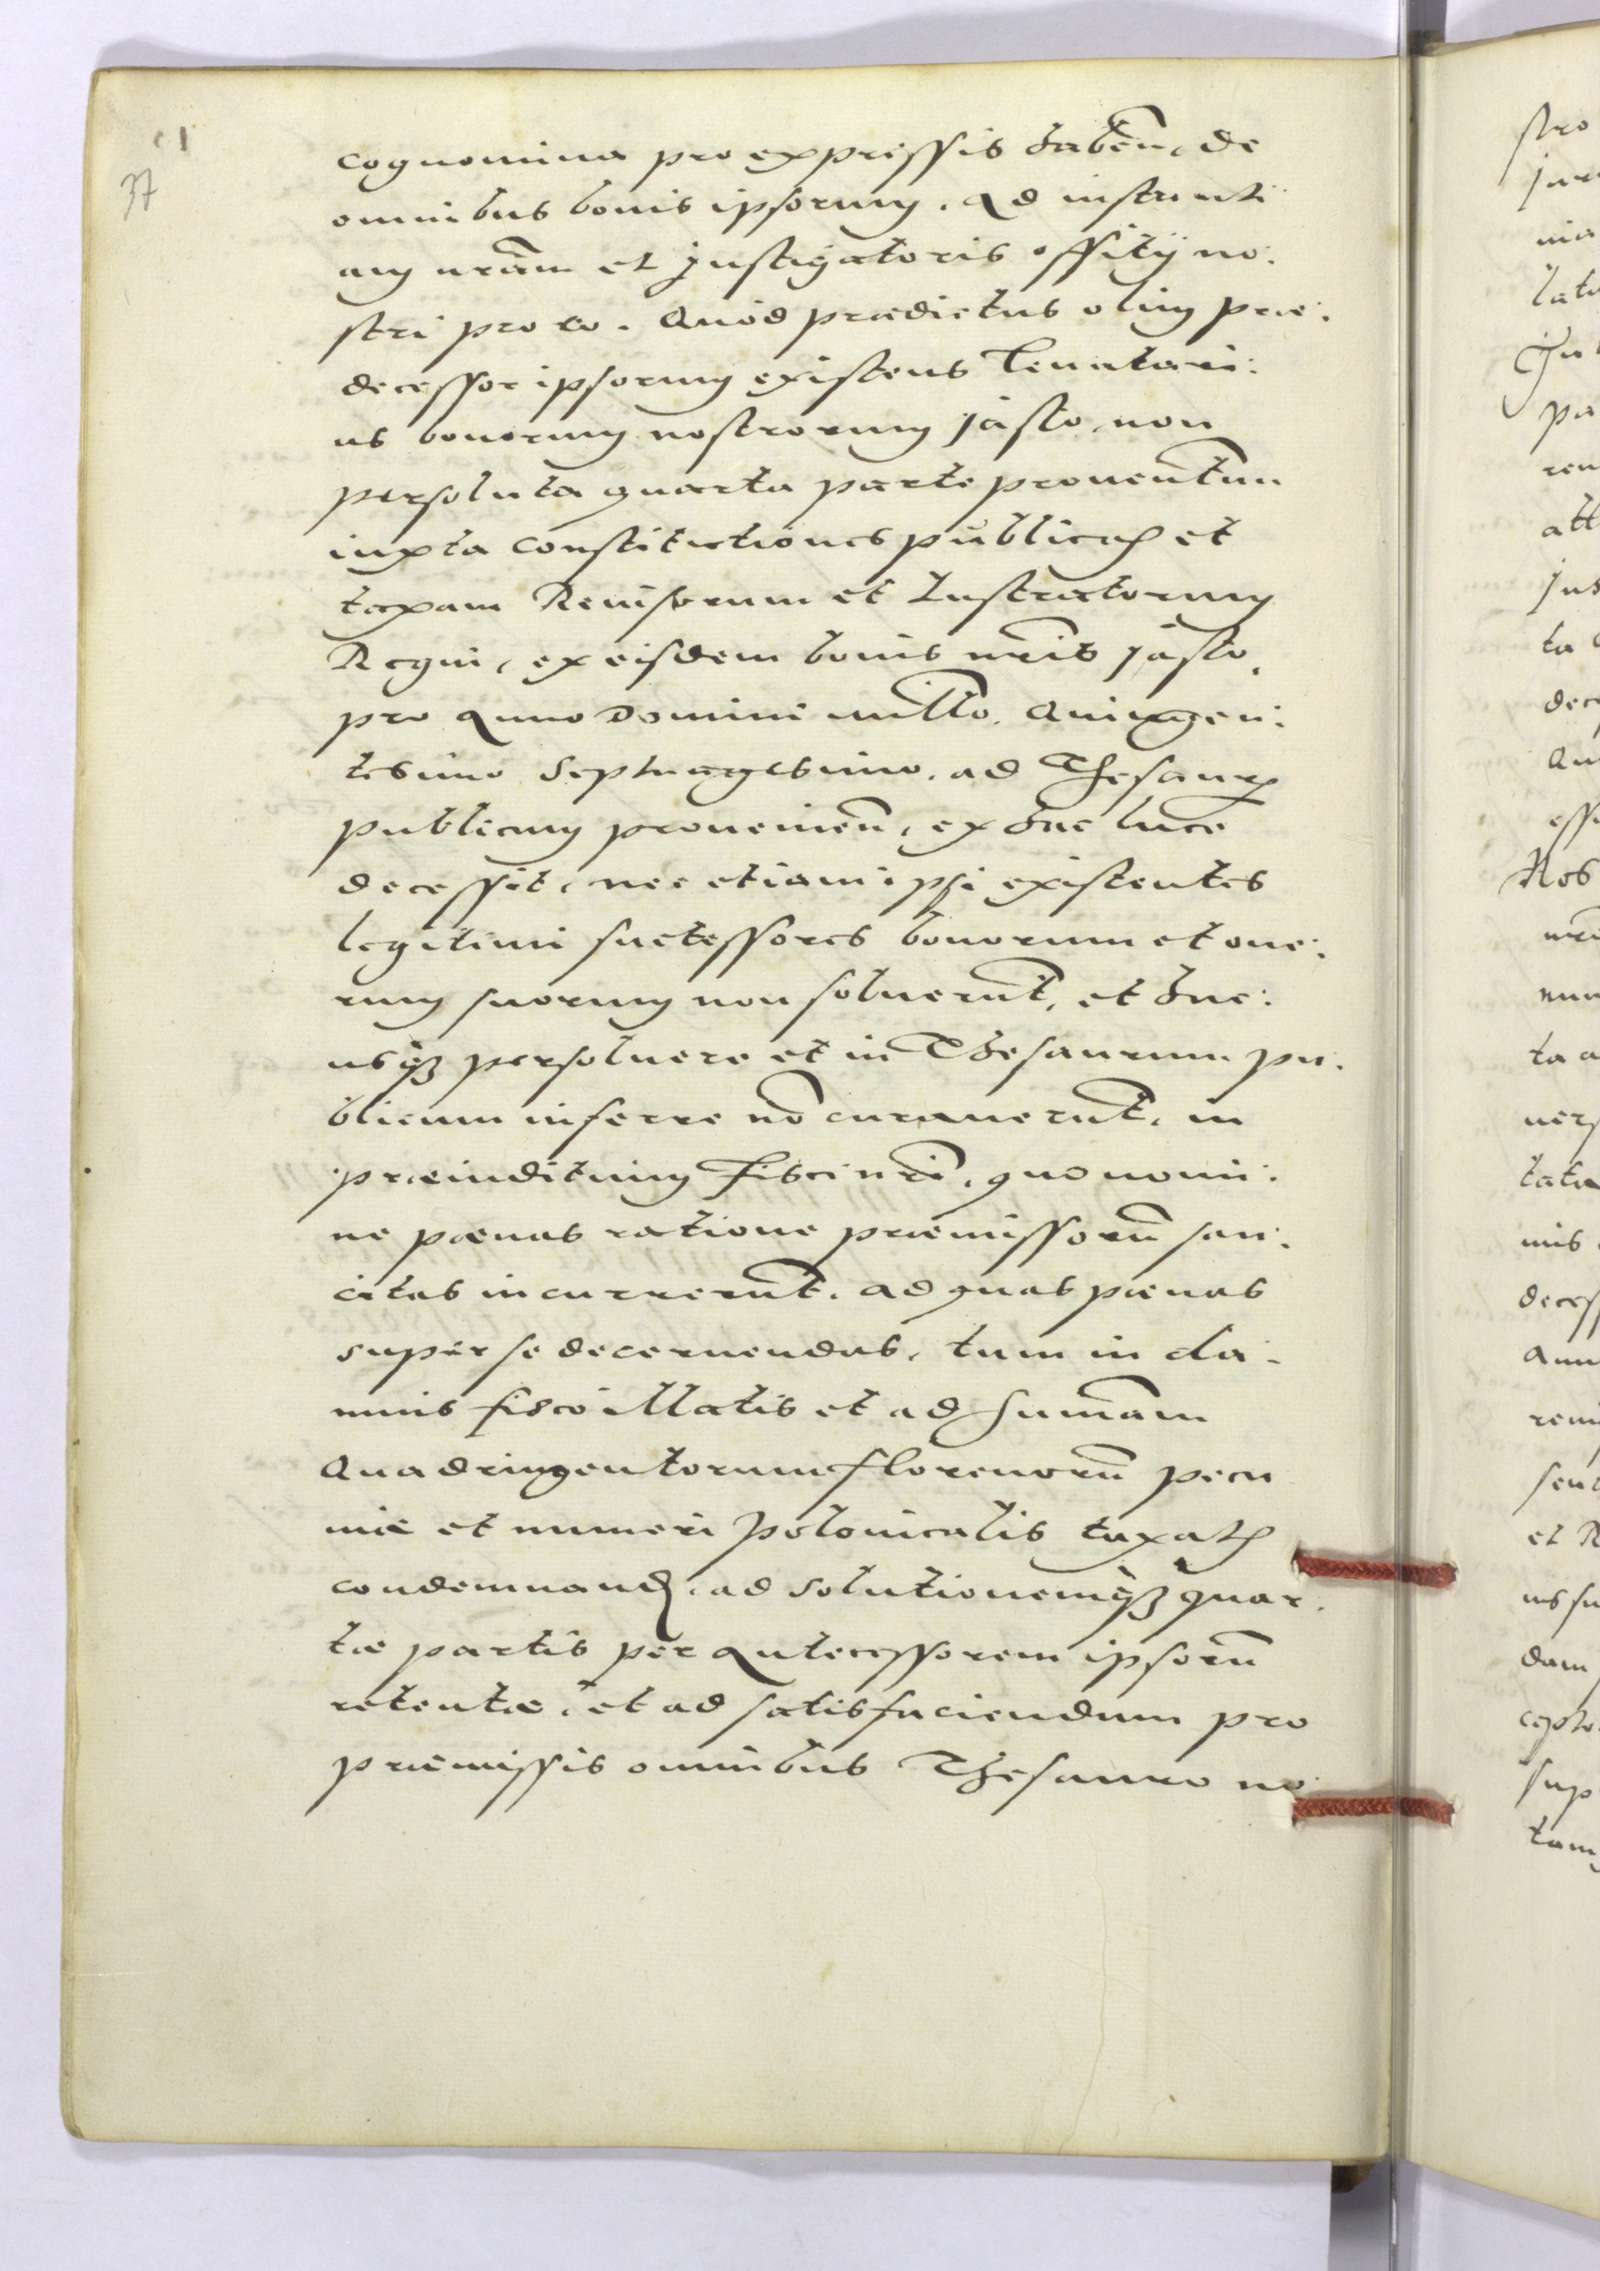 37
cognomina pro expressis haben̄, de
omnibus bonis ipsorum. Ad instanti
am nr̄am et Instigatoris offitij no:
stri pro eo. Quod prædictus olim præ:
decessor ipsorum existens Tenutari:
us bonorum nostrorum Jasło, non
persoluta quarta parte prouentuum
iuxta Constitutiones publicas et
taxam Reuisorum et Lustratorum
Regni, ex eisdem bonis nr̄is Jasło,
pro Anno Domini mill̄o. Quingen:
tesimo Septuagesimo. ad Thesaurum
publicum prouenien̄, ex hac luce
decessit, nec etiam ipsi existentes
legitimi suctessores bonorum et one:
rum suorum non soluerun̄t, et huc:
usq3 persoluere et in Thesaurum pu:
blicum inferre nō curauerun̄t, in
præiuditium Fisci nr̄i, quo nomi:
ne pænas ratione præmissorū san:
citas incurrerun̄t. ad quas pænas
super se decernendas, tum in da:
mnis fisco illatis et ad sumam̄
Quadringentorum florenorū pecu
niæ et numeri Polonicalis taxatis
condemnand, ad solutionemq3 quar:
tæ partis per Antecessorem ipsorū
retentæ, et ad satisfaciendum pro
præmissis omnibus Thesauro no: